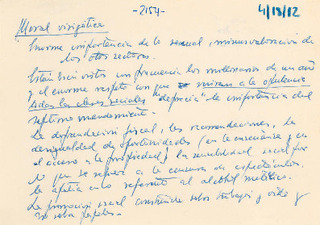 -2154-
4/13/12
Moral visigótica
Enorme importancia de lo sexual, minusvaloración de
los otros sectores.
Están con frecuencia los millonarios de un año
y el enorme respeto con que se miran a la opulencia
todas las clases sociales "deprecia" la importancia del
séptimo mandamiento.
La defraudación fiscal, las recomendaciones, la
desigualdad de oportunidades (en la enseñanza y en
el acceso a la propiedad), la sensibilidad social por
lo que se refiere a la censura de espectáculos.
la apatía en lo referente al alcohol
La promoción social construida sobre trabajo y vida y
no sobre papeles.